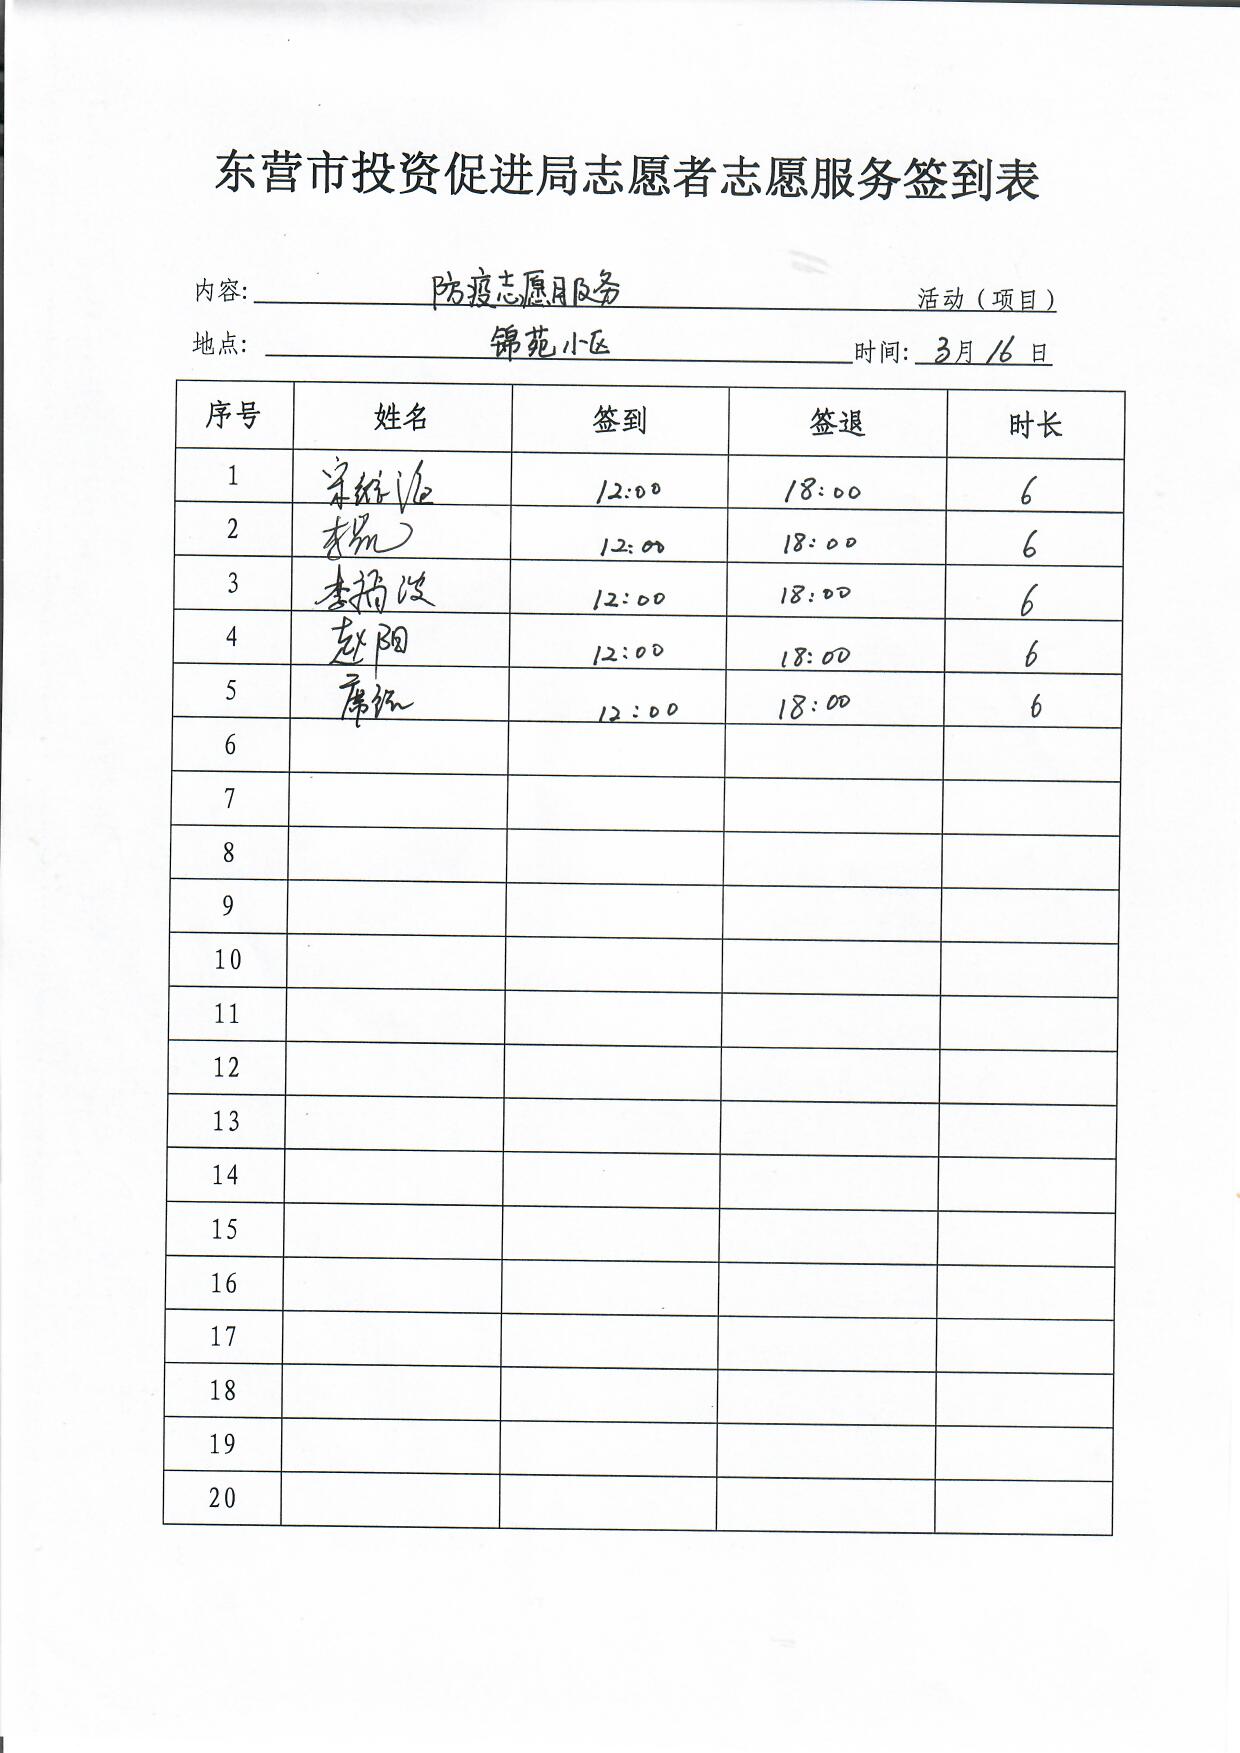 东营市投资促进局志愿者志愿服务签到表
内容: 防疫志愿服务 活动（项目）
地点: 锦苑小区 时间: 3月16日
序号 姓名 签到 签退 时长
1 宋 12:00 18:00 6
2 李 12:00 18:00 6
3 李福波 12:00 18:00 6
4 赵阳 12:00 18:00 6
5 席 12:00 18:00 6
6
7
8
9
10
11
12
13
14
15
16
17
18
19
20